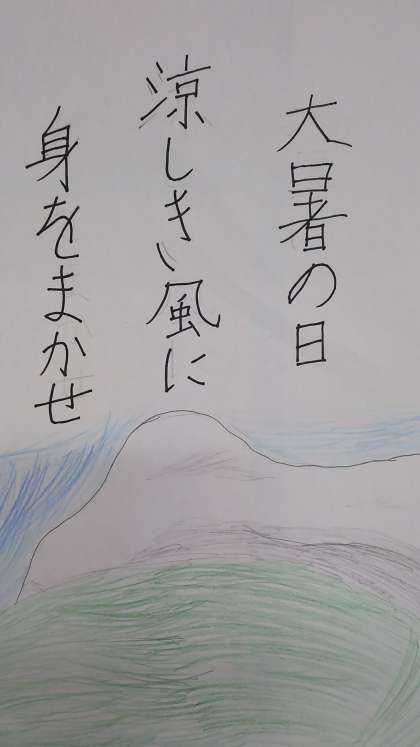 大暑の日
涼しきい風に
身をまかせ